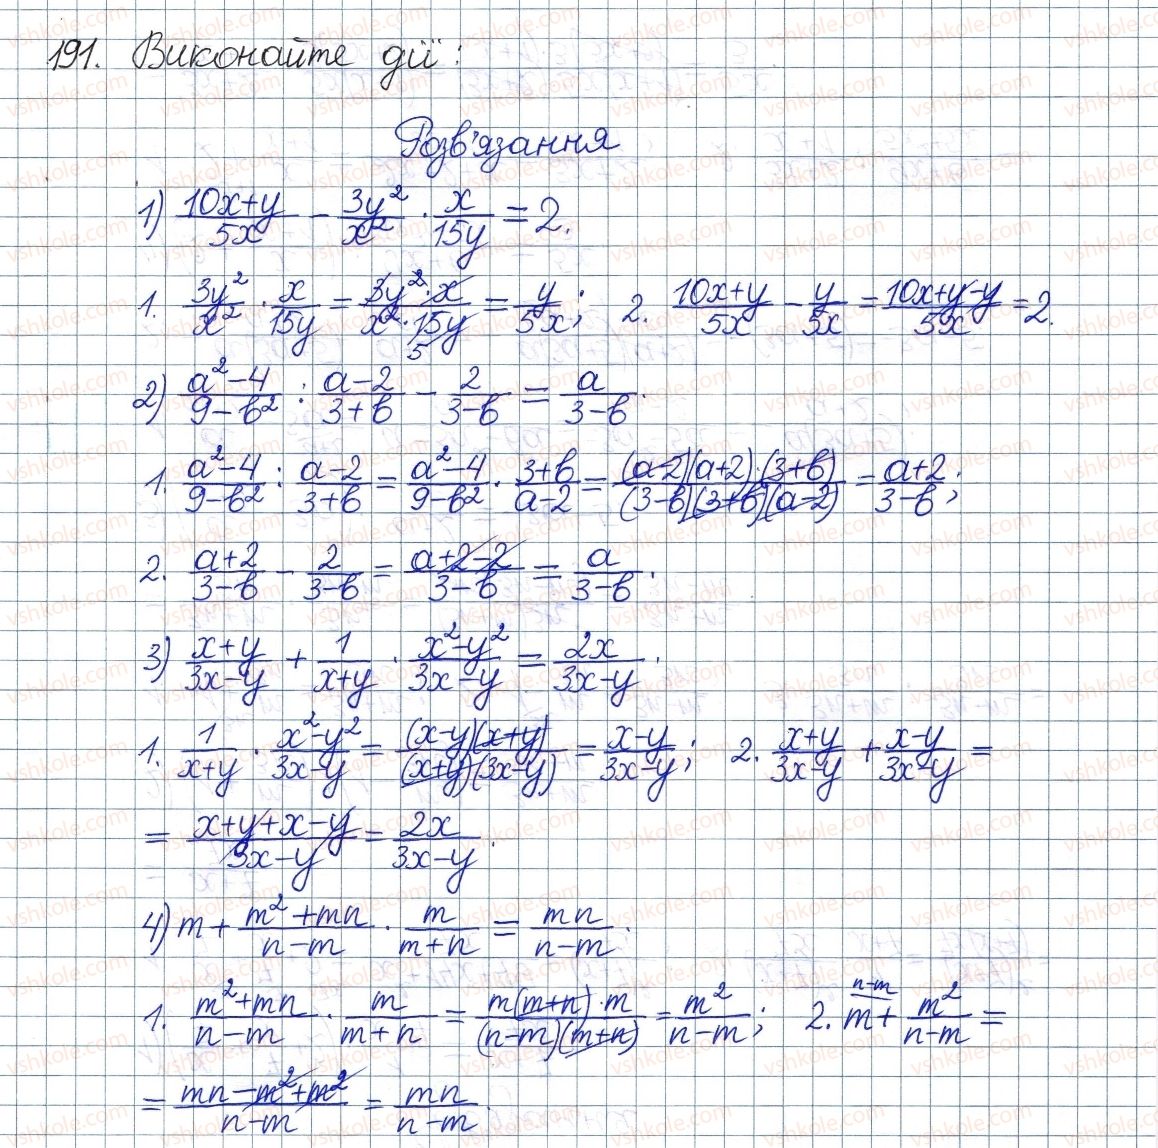 191. Виконайте дії:
Розв'язання
1) (10x+y)/(5x) - (3y²)/(x²) · x/(15y) = 2.
1. (3y²)/(x²) · x/(15y) = (3y²·x)/(x²·15y) 5 = y/(5x); 2. (10x+y)/(5x) - y/(5x) = (10x+y-y)/(5x) = 2.
2) (a²-4)/(9-b²) : (a-2)/(3+b) - 2/(3-b) = a/(3-b).
1. (a²-4)/(9-b²) : (a-2)/(3+b) = (a²-4)/(9-b²) · (3+b)/(a-2) = ((a-2)(a+2)·(3+b))/((3-b)(3+b)(a-2)) = (a+2)/(3-b);
2. (a+2)/(3-b) - 2/(3-b) = (a+2-2)/(3-b) = a/(3-b).
3) (x+y)/(3x-y) + 1/(x+y) · (x²-y²)/(3x-y) = 2x/(3x-y).
1. 1/(x+y) · (x²-y²)/(3x-y) = ((x-y)(x+y))/((x+y)(3x-y)) = (x-y)/(3x-y); 2. (x+y)/(3x-y) + (x-y)/(3x-y) =
= (x+y+x-y)/(3x-y) = 2x/(3x-y).
4) m + (m²+mn)/(n-m) · m/(m+n) = mn/(n-m).
1. (m²+mn)/(n-m) · m/(m+n) = (m(m+n)·m)/((n-m)(m+n)) = m²/(n-m); 2. n-m m + m²/(n-m) =
= (mn-m²+m²)/(n-m) = mn/(n-m).